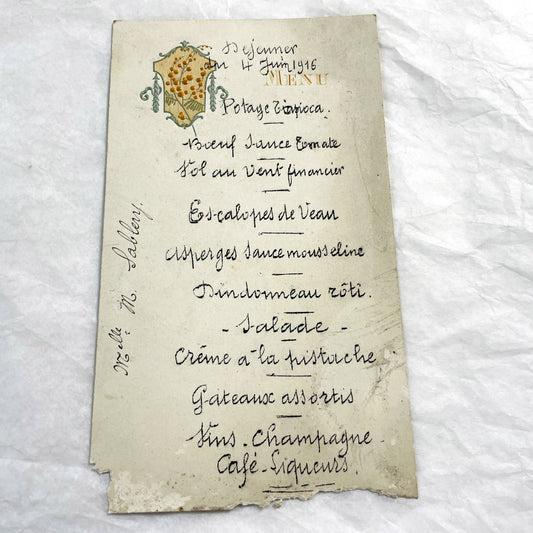 Déjeuner
du 4 Juin 1916
MENU
Potage Tapioca.
Bœuf Sauce Tomate
Vol au Vent financier
Escalopes de Veau
Asperges Sauce mousseline
Dindonneau rôti.
- Salade -
Crême à la pistache
Gateaux assortis
Vins - Champagne -
Café - Liqueurs.
Melle M. Sablery.